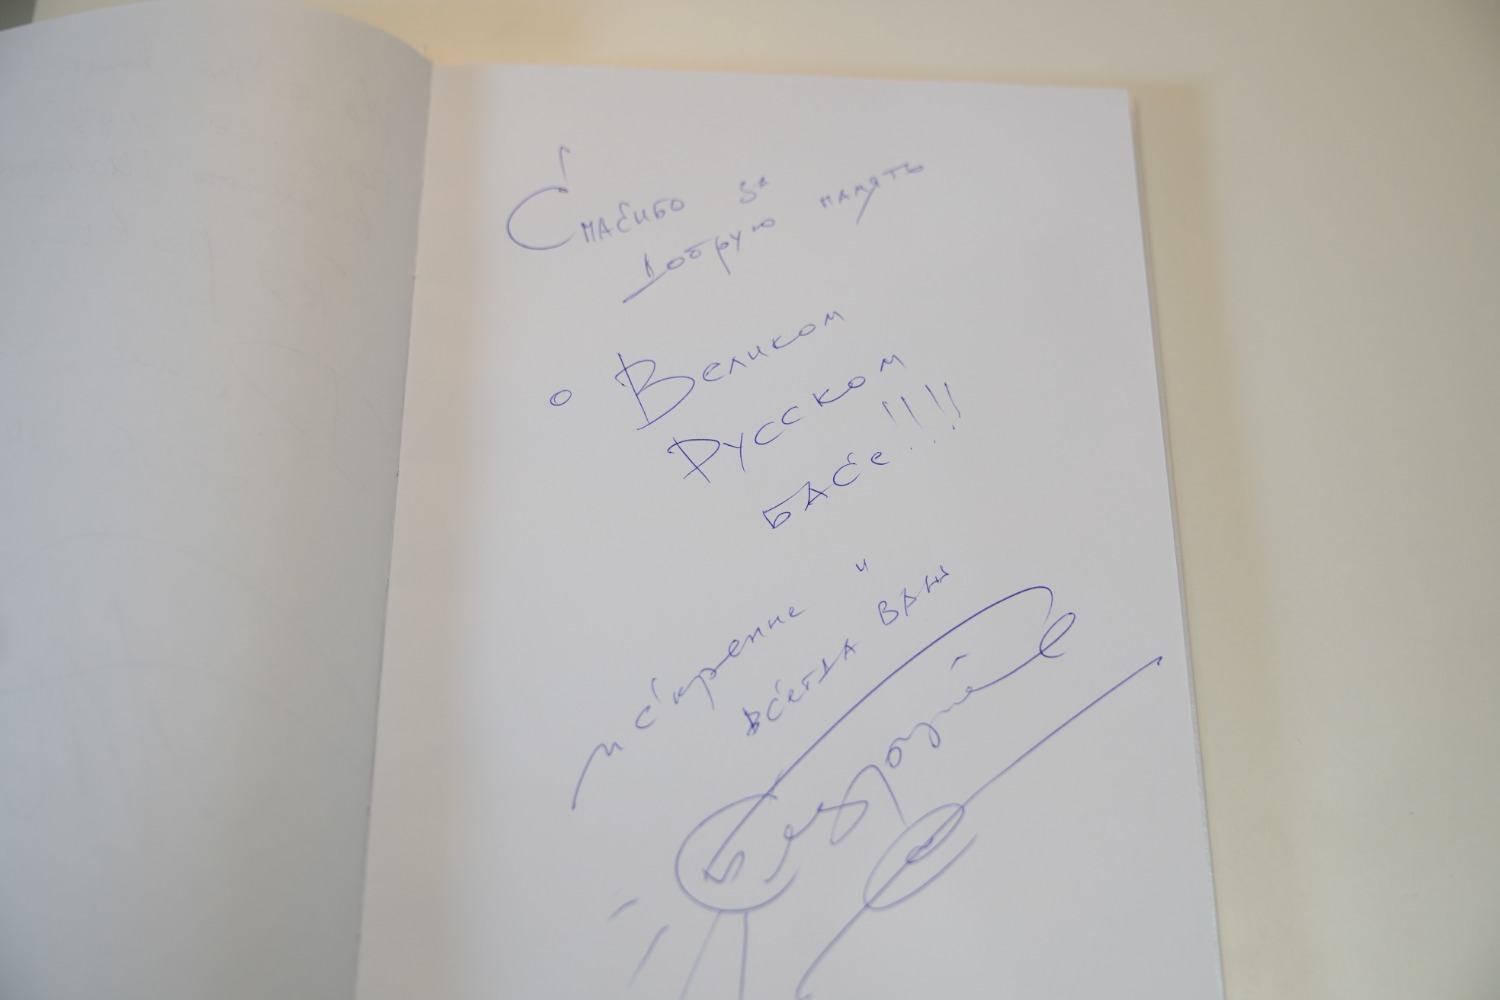 Спасибо за
добрую память
о Великом
Русском
БАСе!!!!
искренне и
всегда ваш